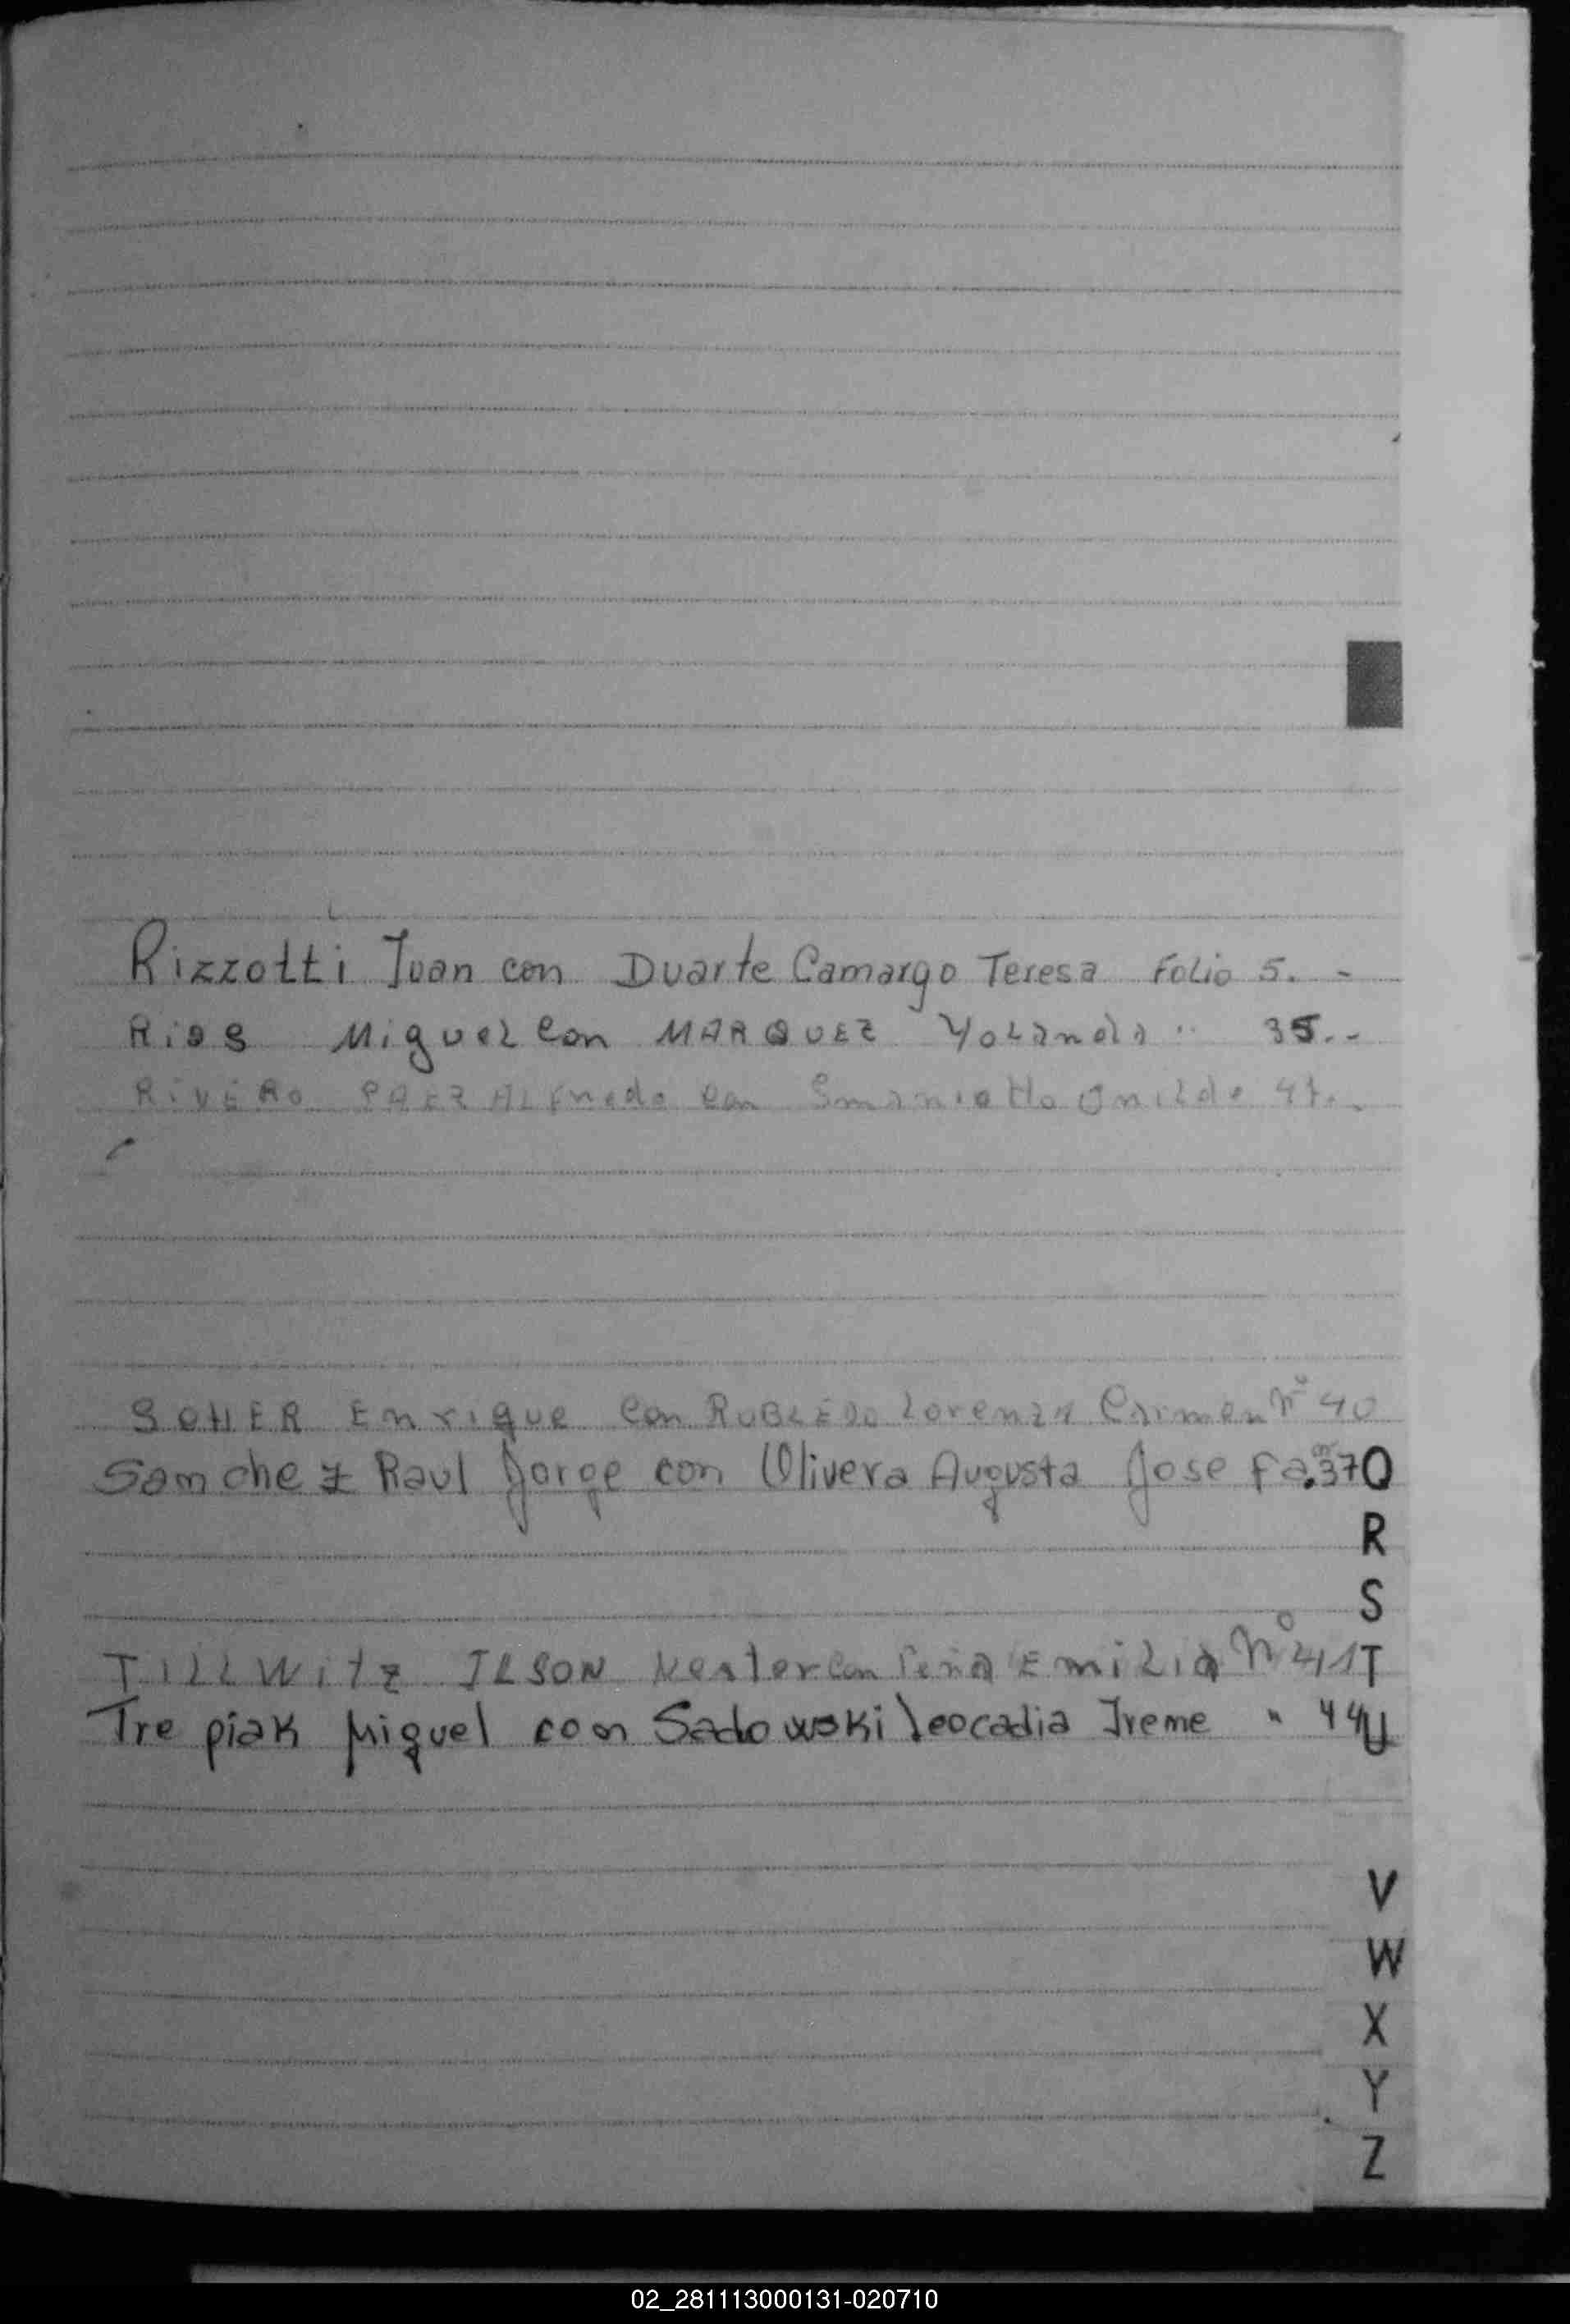 Rizzotti Juan con Duarte Camargo Teresa Folio 5. -
Rios Miguel con MARQUEZ Yolanda " 35.-
RiVERo PAEZ ALFredo con Smaniotto Onildo
SOHER Enrique con ROBLEDO Lorenza Carmen Nº 40
Sanchez Raul Jorge con Olivera Augusta Josefa. 37 Q
R
S
TILLWitz ILSON Nestor con Peña Emilia Nº 41 T
Trepiak Miguel con Sadowski leocadia Irene " 44 U
V
W
X
Y
Z
02_281113000131-020710